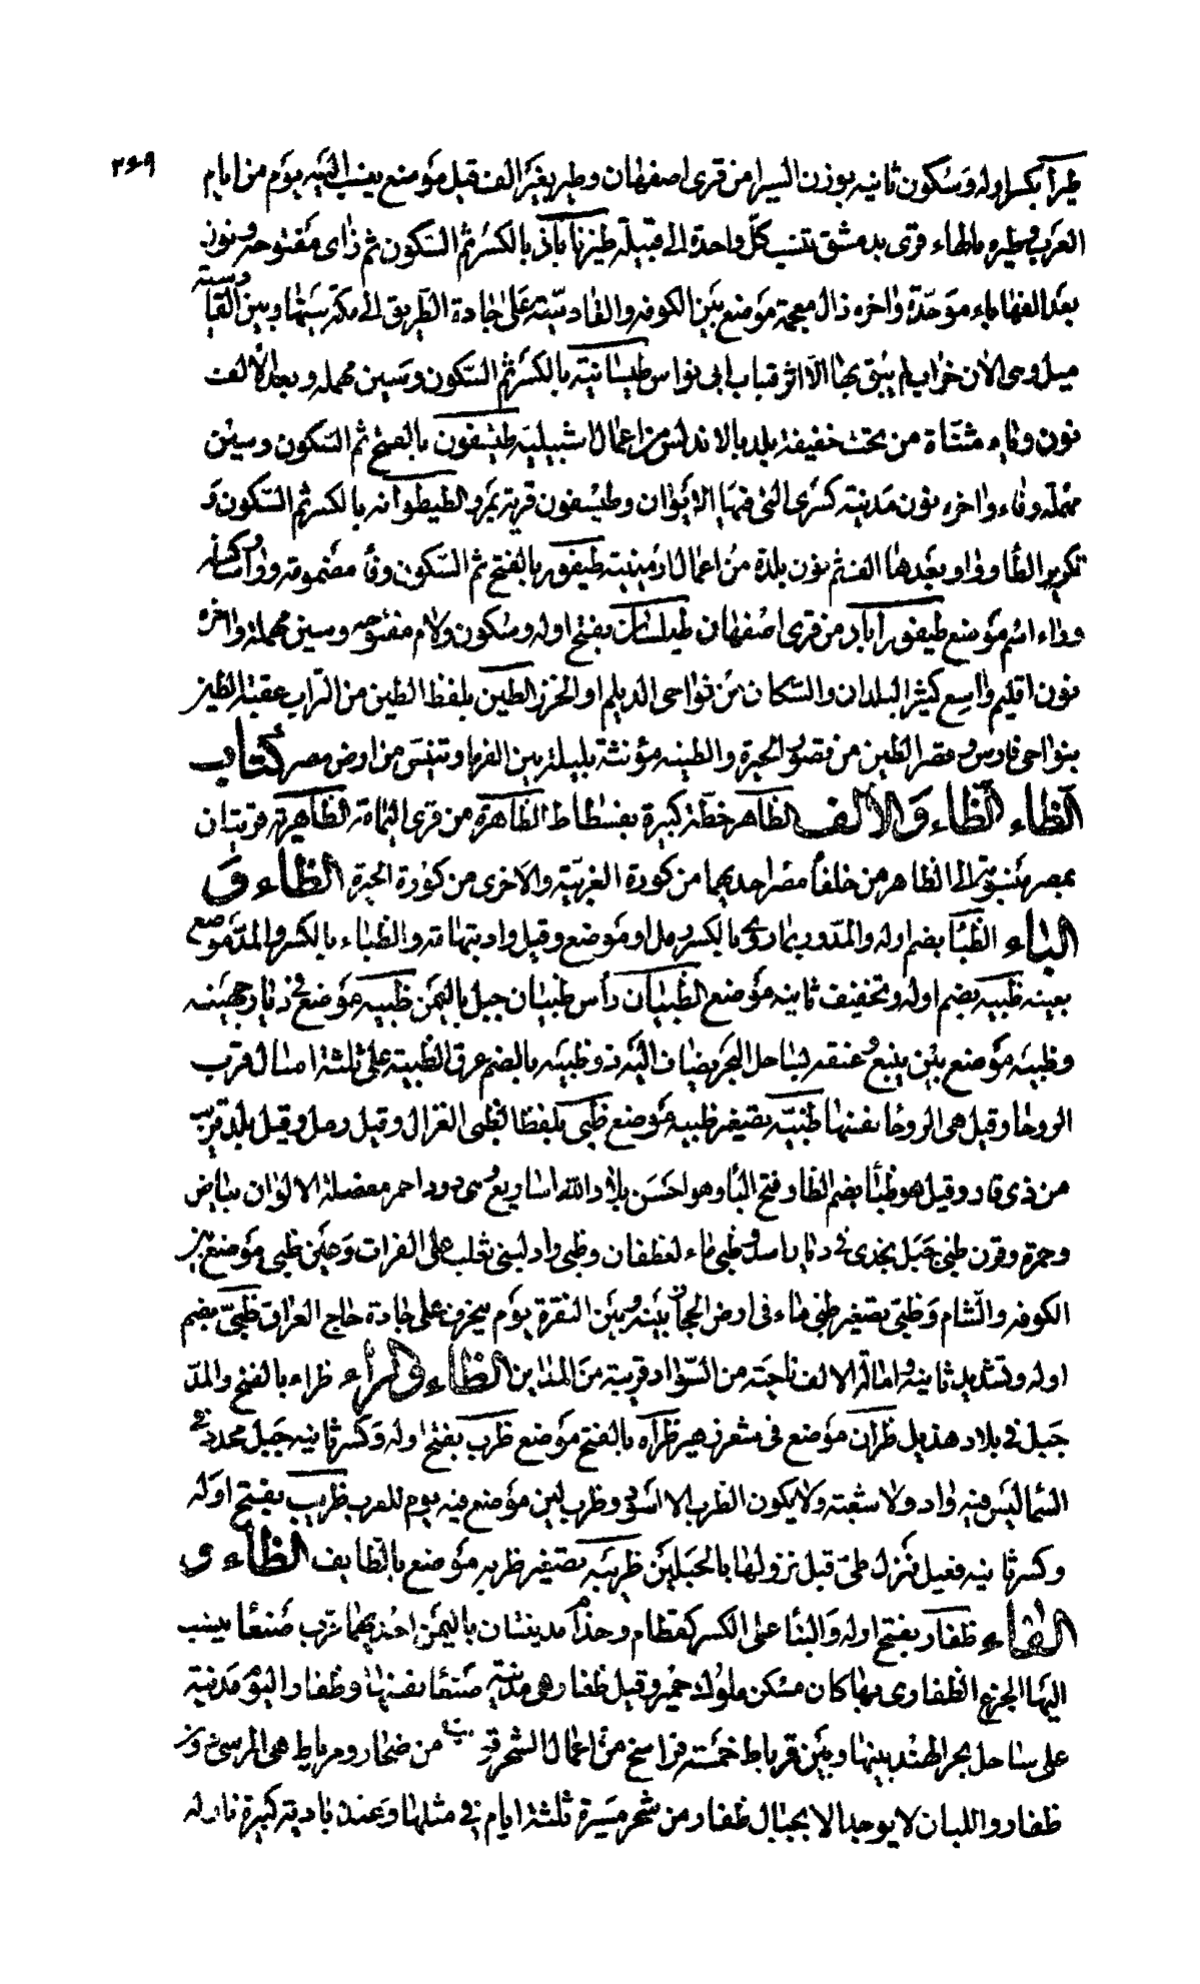 ٣٤٩
طيرا بكسر اوله وسكون ثانيه بوزن السيرا من قرى اصفهان وطير بغير الف قيل موضع ينسب اليه يوم من ايام
العرب وطيره بالهاء قرى بدمشق تنسب كل واحدة الى قبيلة طيزناباذ بالكسر ثم السكون ثم زاى مفتوحة ونون
بعد الفها باء موحدة واخره ذال معجمة موضع بين الكوفه والقادسية على جادة الطريق الى مكة بينها وبين القادسية
ميل وهى الان خراب لم يبق بها الا اثر قباب ابى نواس طيسانية بالكسر ثم السكون وسين مهمله وبعد الالف
نون وياء مثناة من تحت خفيفة بلد بالاندلس من اعمال اشبيليه طيسفون بالفتح ثم السكون وسين
مهملة وفاء واخره نون مدينة كسرى التى فيها الايوان وطيسفون قرية بمرو الطيطوانه بالكسر ثم السكون و
تكرير الطاء وواو بعدها الف ثم نون بلدة من اعمال ارمينية طيفور بالفتح ثم السكون وفا مضمومة وواو ساكنه
وراء اسم موضع طيفوراباد من قرى اصفهان طيلسان بفتح اوله وسكون ولام مفتوحه وسين مهملة واخره
نون اقليم واسع كثير البلدان والسكان من نواحى الديلم او الخزر الطين بلفظ الطين من التراب عقبة الطين
بنواحى فارس وقصر الطين من قصور الحيرة والطينه مؤنثة بليدة بين الفرما وتنيس من ارض مصر كتاب
الظاء الظاء والالف الظاهر خطة كبيرة بفسطاط الظاهرة من قرى اليمامة الظاهرية قريتان
بمصر منسوبة الى الظاهر من خلفا مصر احديهما من كورة الغربية والاخرى من كورة الجيزة الظاء و
الباء الظبا بضم اوله والمد وربما روى بالكسر رمل او موضع وقيل واد بتهامة والظباء بالكسر والمد موضع
بعينه ظبيه بضم اوله وتخفيف ثانيه موضع الظبيان رأس ظبيان جبل باليمن ظبيه موضع فى ديار جهينه
وظبيه موضع بين ينبع وعنقه لساحل البحر يضاف اليه ذو ظبيه بالضم عرق الظبية على ثلثة اميال قرب
الروحا وقيل هى الروحا نفسها ظبيه تصغير ظبيه موضع ظبى بلفظ الظبى الغزال وقيل رمل وقيل بلد قريب
من ذى قار وقيل هو ظبا بضم الظا وفتح البا وهو احسن بلاد الله اساريع وهى دود احمر مفصلة الالوان بياض
وحمرة وقرن ظبى جبل نجدى فى ديار اسد وظبى ماء لغطفان وظبى واد لبنى تغلب على الفرات وعين ظبى موضع بين
الكوفه والشام وظبى تصغير ظبى ماء فى ارض الحجاز بينه وبين النقرة يوم منحرف على جادة حاج العراق ظبى بضم
اوله وتشديد ثانيه وامالة الالف ناحية من السواد قريبة من المداين الظاء والراء ظراء بالفتح والمد
جبل فى بلاد هذيل ظران موضع فى شعر زهير ظراه بالفتح موضع ظرب بفتح اوله وكسر ثانيه جبل محدد فى
السما ليس فيه واد ولا شعبة ولا يكون الظرب الا اسود وظرب لبن موضع فيه يوم للعرب ظريب بفتح اوله
وكسر ثانيه فعيل منزل طى قبل نزولها بالجبلين ظريبه تصغير ظربه موضع بالطايف الظاء و
الفاء ظفار بفتح اوله والبنا على الكسر كقطام وحذام مدينتان باليمن احديهما قرب صنعا ينسب
اليها الجزع الظفارى بها كان مسكن ملوك حمير وقيل ظفار هى مدينة صنعا نفسها وظفار اليوم مدنية
على ساحل بحر الهند بينها وبين مرباط خمسة فراسخ من اعمال الشحر قريب من صحار ومرباط هى المرسى و
ظفار واللبان لا يوجد الا بجبال ظفار من شحر مسيرة ثلثة ايام فى مثلها وعنده بادية كبيرة نازله